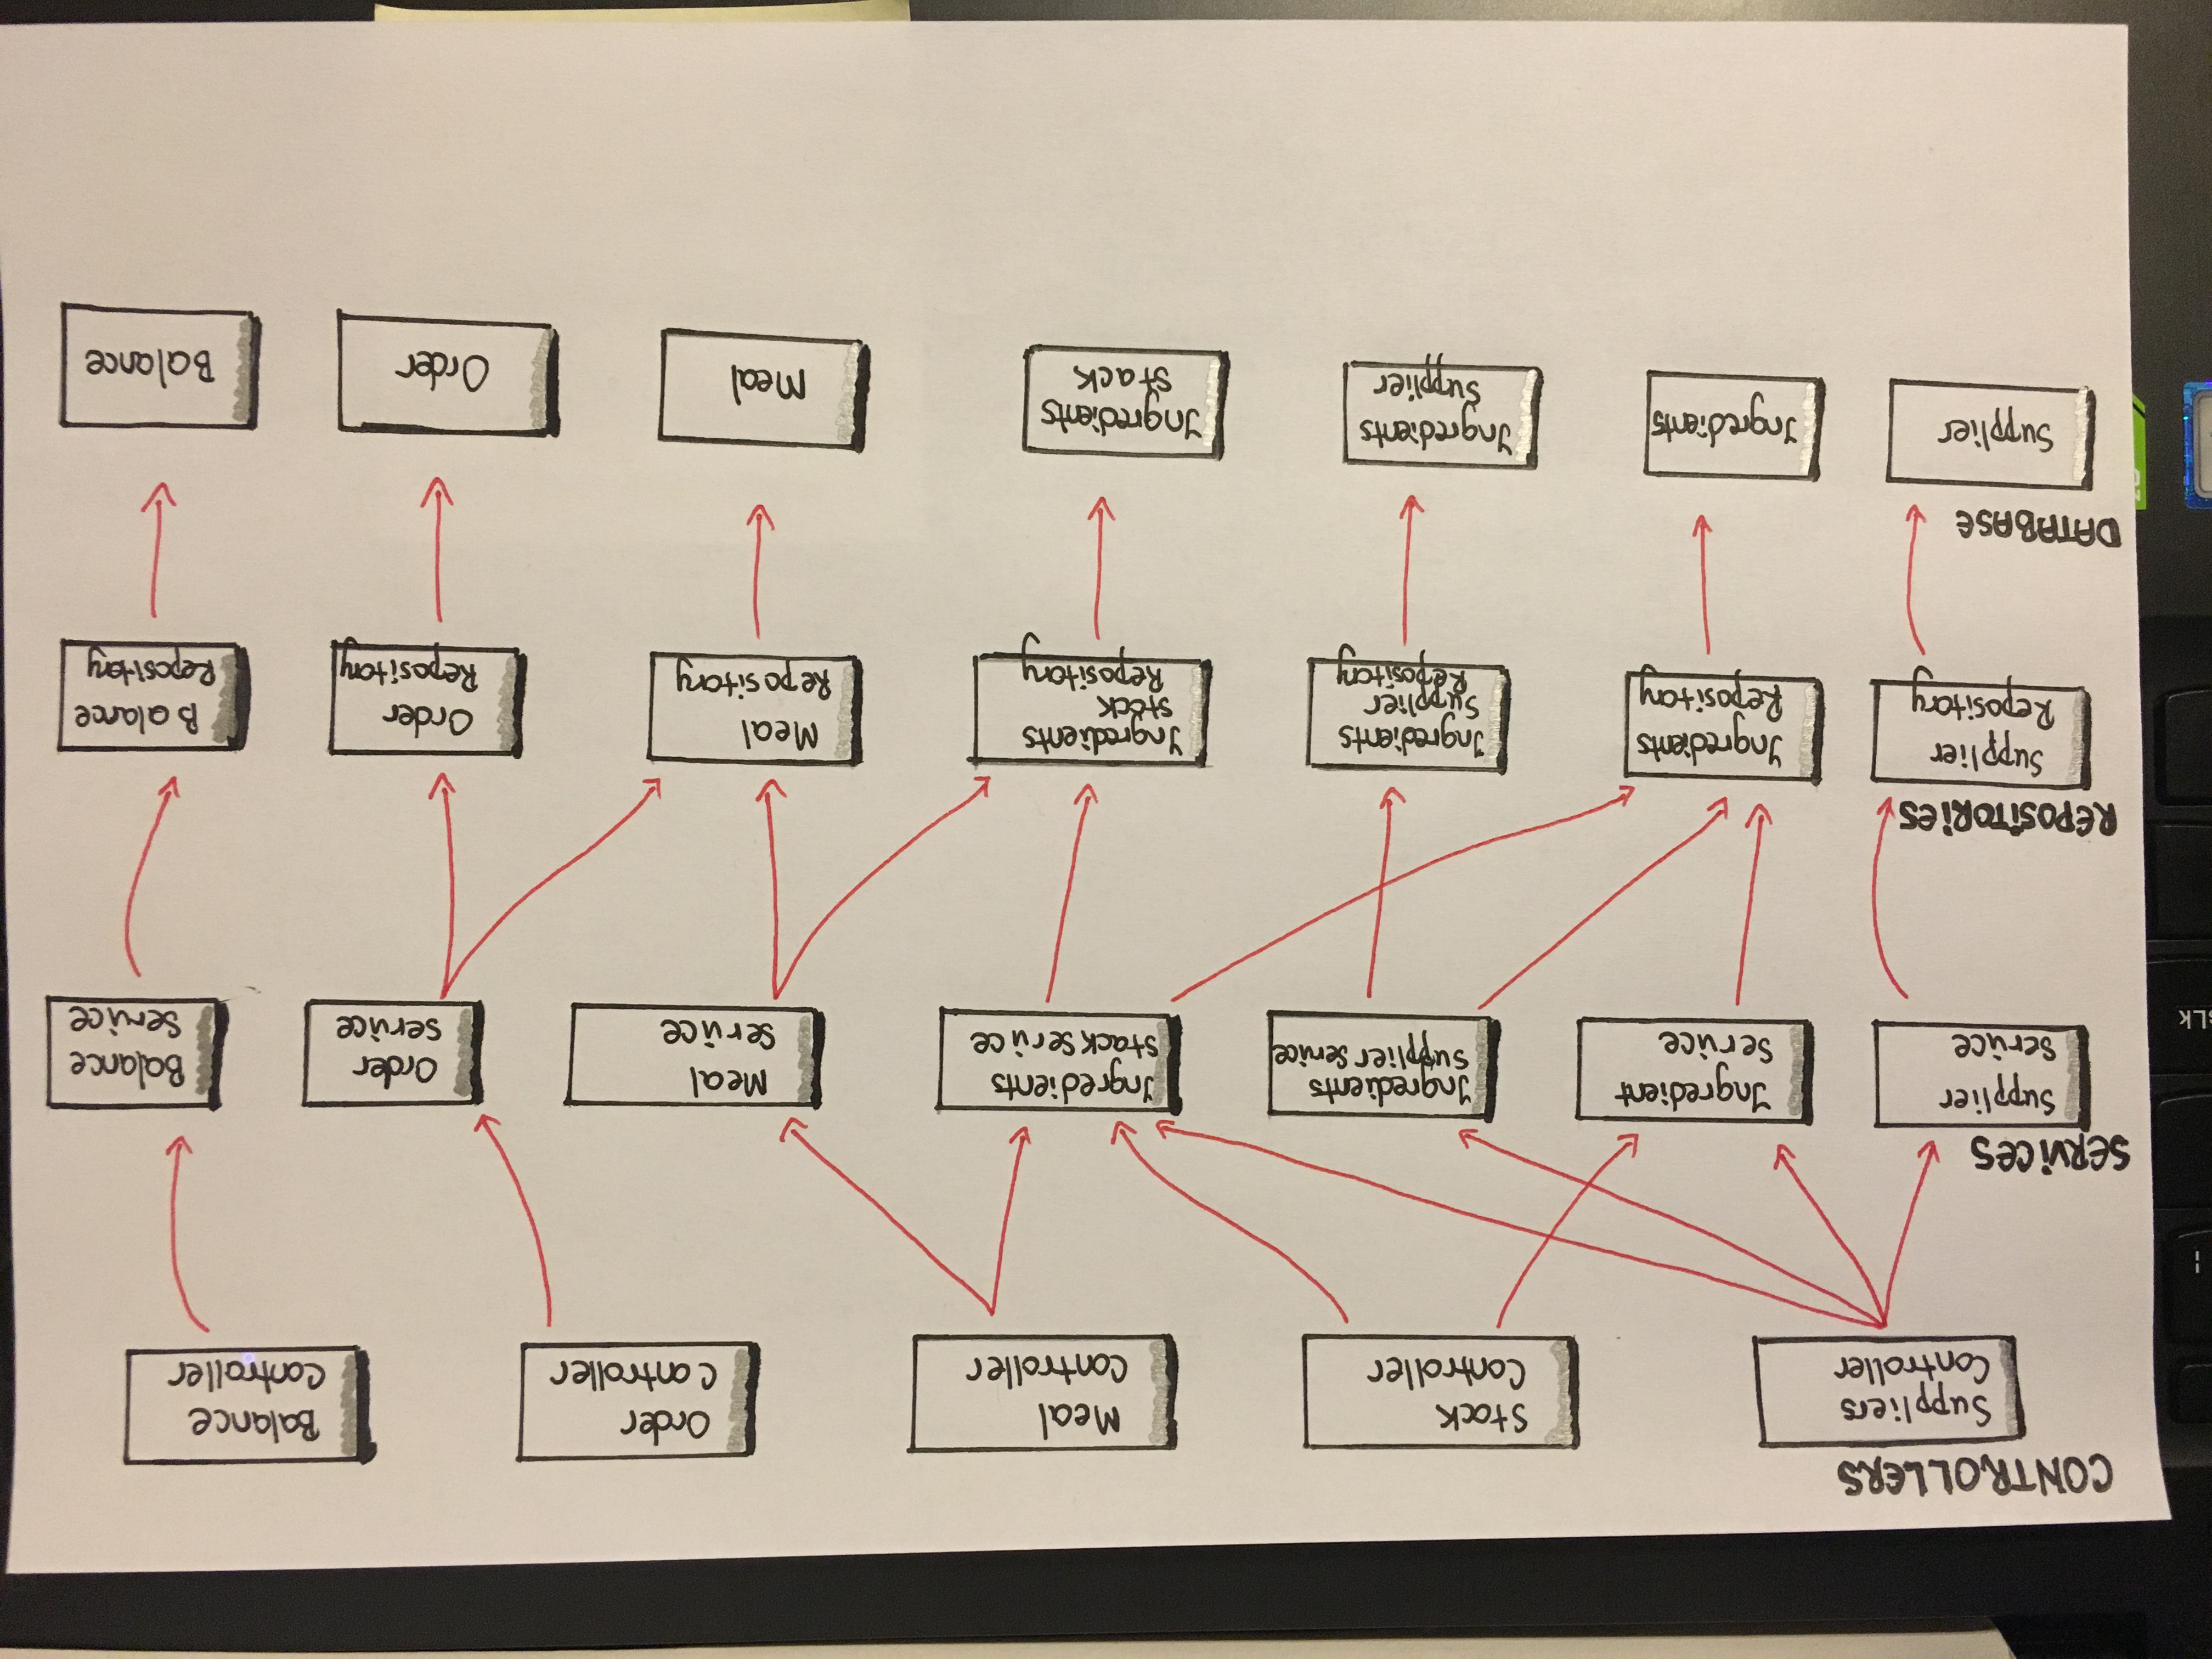 CONTROLLERS
Suppliers
Controller
Stock
Controller
Meal
Controller
Order
Controller
Balance
Controller
SERVICES
Supplier
Service
Ingredient
Service
Ingredients
Supplier Service
Ingredients
Stack Service
Meal
Service
Order
Service
Balance
Service
REPOSITORIES
Supplier
Repository
Ingredients
Repository
Ingredients
Supplier
Repository
Ingredients
Stock
Repository
Meal
Repository
Order
Repository
Balance
Repository
DATABASE
Supplier
Ingredients
Ingredients
Supplier
Ingredients
Stack
Meal
Order
Balance
sLk